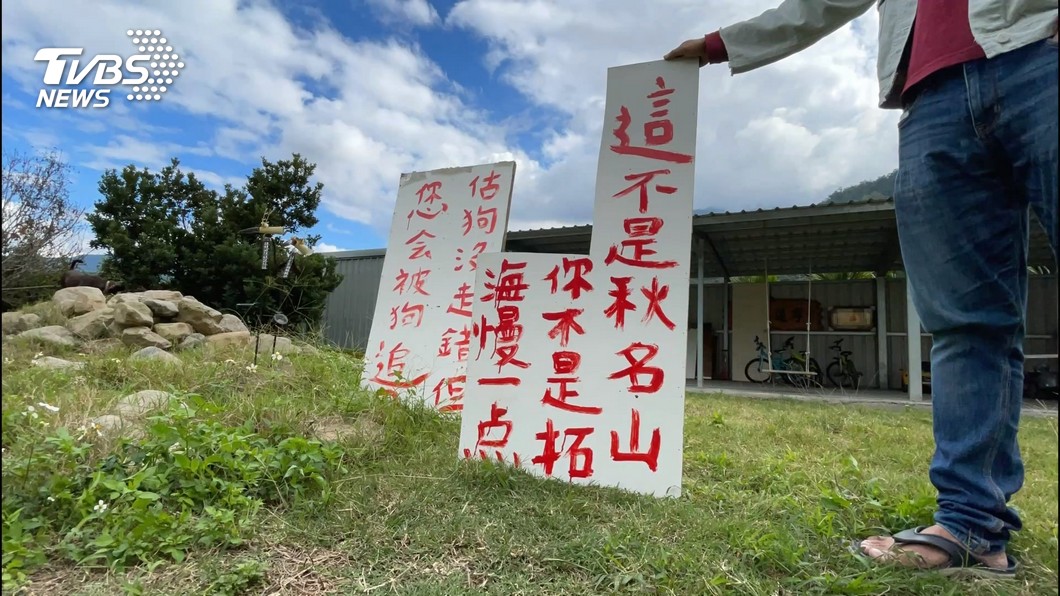 TVBS
NEWS
這不是秋名山
你不是拓
海慢一点
估狗沒走錯但
您会被狗追